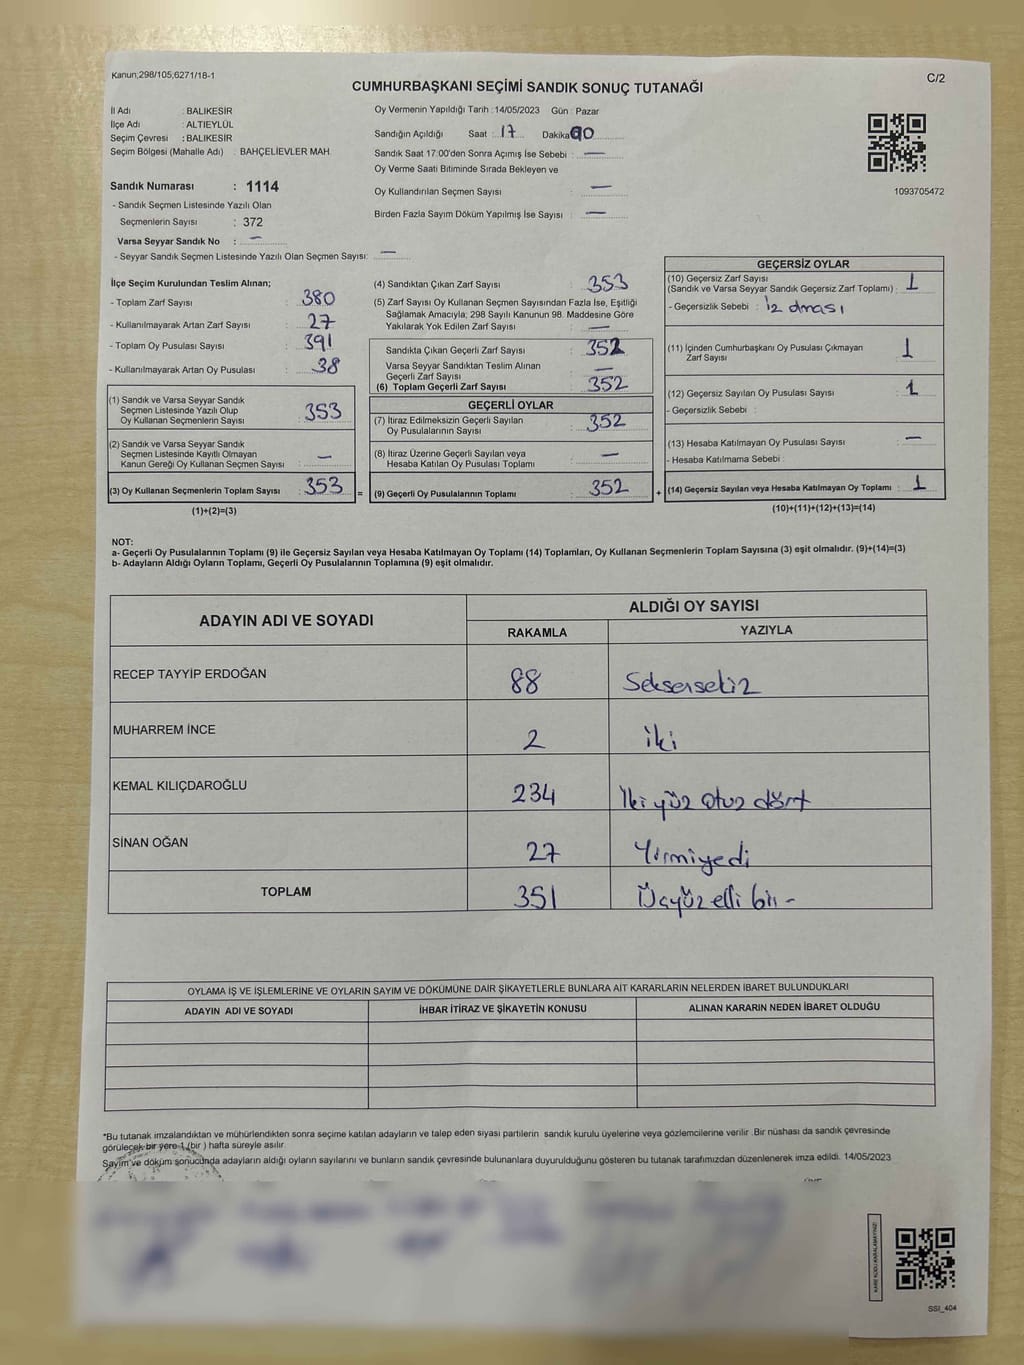 Kanun;298/105,6271/18-1
C/2
CUMHURBAŞKANI SEÇİMİ SANDIK SONUÇ TUTANAĞI
İl Adı : BALIKESİR
İlçe Adı : ALTIEYLÜL
Seçim Çevresi : BALIKESİR
Seçim Bölgesi (Mahalle Adı) : BAHÇELİEVLER MAH.
Sandık Numarası : 1114
- Sandık Seçmen Listesinde Yazılı Olan
Seçmenlerin Sayısı : 372
Varsa Seyyar Sandık No : —
- Seyyar Sandık Seçmen Listesinde Yazılı Olan Seçmen Sayısı: —
Oy Vermenin Yapıldığı Tarih : 14/05/2023 Gün : Pazar
Sandığın Açıldığı Saat : 17 Dakika 00
Sandık Saat 17:00'den Sonra Açımış İse Sebebi : —
Oy Verme Saati Bitiminde Sırada Bekleyen ve
Oy Kullandırılan Seçmen Sayısı : —
Birden Fazla Sayım Döküm Yapılmış İse Sayısı : —
1093705472
İlçe Seçim Kurulundan Teslim Alınan;
- Toplam Zarf Sayısı : 380
- Kullanılmayarak Artan Zarf Sayısı : 27
- Toplam Oy Pusulası Sayısı : 391
- Kullanılmayarak Artan Oy Pusulası : 38
(1) Sandık ve Varsa Seyyar Sandık
Seçmen Listesinde Yazılı Olup
Oy Kullanan Seçmenlerin Sayısı : 353
(2) Sandık ve Varsa Seyyar Sandık
Seçmen Listesinde Kayıtlı Olmayan
Kanun Gereği Oy Kullanan Seçmen Sayısı : —
(3) Oy Kullanan Seçmenlerin Toplam Sayısı : 353 =
(1)+(2)=(3)
(4) Sandıktan Çıkan Zarf Sayısı : 353
(5) Zarf Sayısı Oy Kullanan Seçmen Sayısından Fazla İse, Eşitliği
Sağlamak Amacıyla; 298 Sayılı Kanunun 98. Maddesine Göre
Yakılarak Yok Edilen Zarf Sayısı : —
Sandıkta Çıkan Geçerli Zarf Sayısı : 352
Varsa Seyyar Sandıktan Teslim Alınan
Geçerli Zarf Sayısı : —
(6) Toplam Geçerli Zarf Sayısı : 352
GEÇERLİ OYLAR
(7) İtiraz Edilmeksizin Geçerli Sayılan
Oy Pusulalarının Sayısı : 352
(8) İtiraz Üzerine Geçerli Sayılan veya
Hesaba Katılan Oy Pusulası Toplamı : —
(9) Geçerli Oy Pusulalarının Toplamı : 352 +
GEÇERSİZ OYLAR
(10) Geçersiz Zarf Sayısı
(Sandık ve Varsa Seyyar Sandık Geçersiz Zarf Toplamı) : 1
- Geçersizlik Sebebi : iz olması
(11) İçinden Cumhurbaşkanı Oy Pusulası Çıkmayan
Zarf Sayısı : 1
(12) Geçersiz Sayılan Oy Pusulası Sayısı : 1
- Geçersizlik Sebebi :
(13) Hesaba Katılmayan Oy Pusulası Sayısı : —
- Hesaba Katılmama Sebebi :
(14) Geçersiz Sayılan veya Hesaba Katılmayan Oy Toplamı : 1
(10)+(11)+(12)+(13)=(14)
NOT:
a- Geçerli Oy Pusulalarının Toplamı (9) ile Geçersiz Sayılan veya Hesaba Katılmayan Oy Toplamı (14) Toplamları, Oy Kullanan Seçmenlerin Toplam Sayısına (3) eşit olmalıdır. (9)+(14)=(3)
b- Adayların Aldığı Oyların Toplamı, Geçerli Oy Pusulalarının Toplamına (9) eşit olmalıdır.
ADAYIN ADI VE SOYADI ALDIĞI OY SAYISI
RAKAMLA YAZIYLA
RECEP TAYYİP ERDOĞAN 88 Seksensekiz
MUHARREM İNCE 2 iki
KEMAL KILIÇDAROĞLU 234 İki yüz otuz dört
SİNAN OĞAN 27 Yirmiyedi
TOPLAM 351 Üçyüz elli bir -
OYLAMA İŞ VE İŞLEMLERİNE VE OYLARIN SAYIM VE DÖKÜMÜNE DAİR ŞİKAYETLERLE BUNLARA AİT KARARLARIN NELERDEN İBARET BULUNDUKLARI
ADAYIN ADI VE SOYADI İHBAR İTİRAZ VE ŞİKAYETİN KONUSU ALINAN KARARIN NEDEN İBARET OLDUĞU
*Bu tutanak imzalandıktan ve mühürlendikten sonra seçime katılan adayların ve talep eden siyasi partilerin sandık kurulu üyelerine veya gözlemcilerine verilir .Bir nüshası da sandık çevresinde
görülecek bir yere 1 (bir ) hafta süreyle asılır.
Sayım ve döküm sonucunda adayların aldığı oyların sayılarını ve bunların sandık çevresinde bulunanlara duyurulduğunu gösteren bu tutanak tarafımızdan düzenlenerek imza edildi. 14/05/2023
KARE KODU KARALAMAYINIZ!
SSI_404